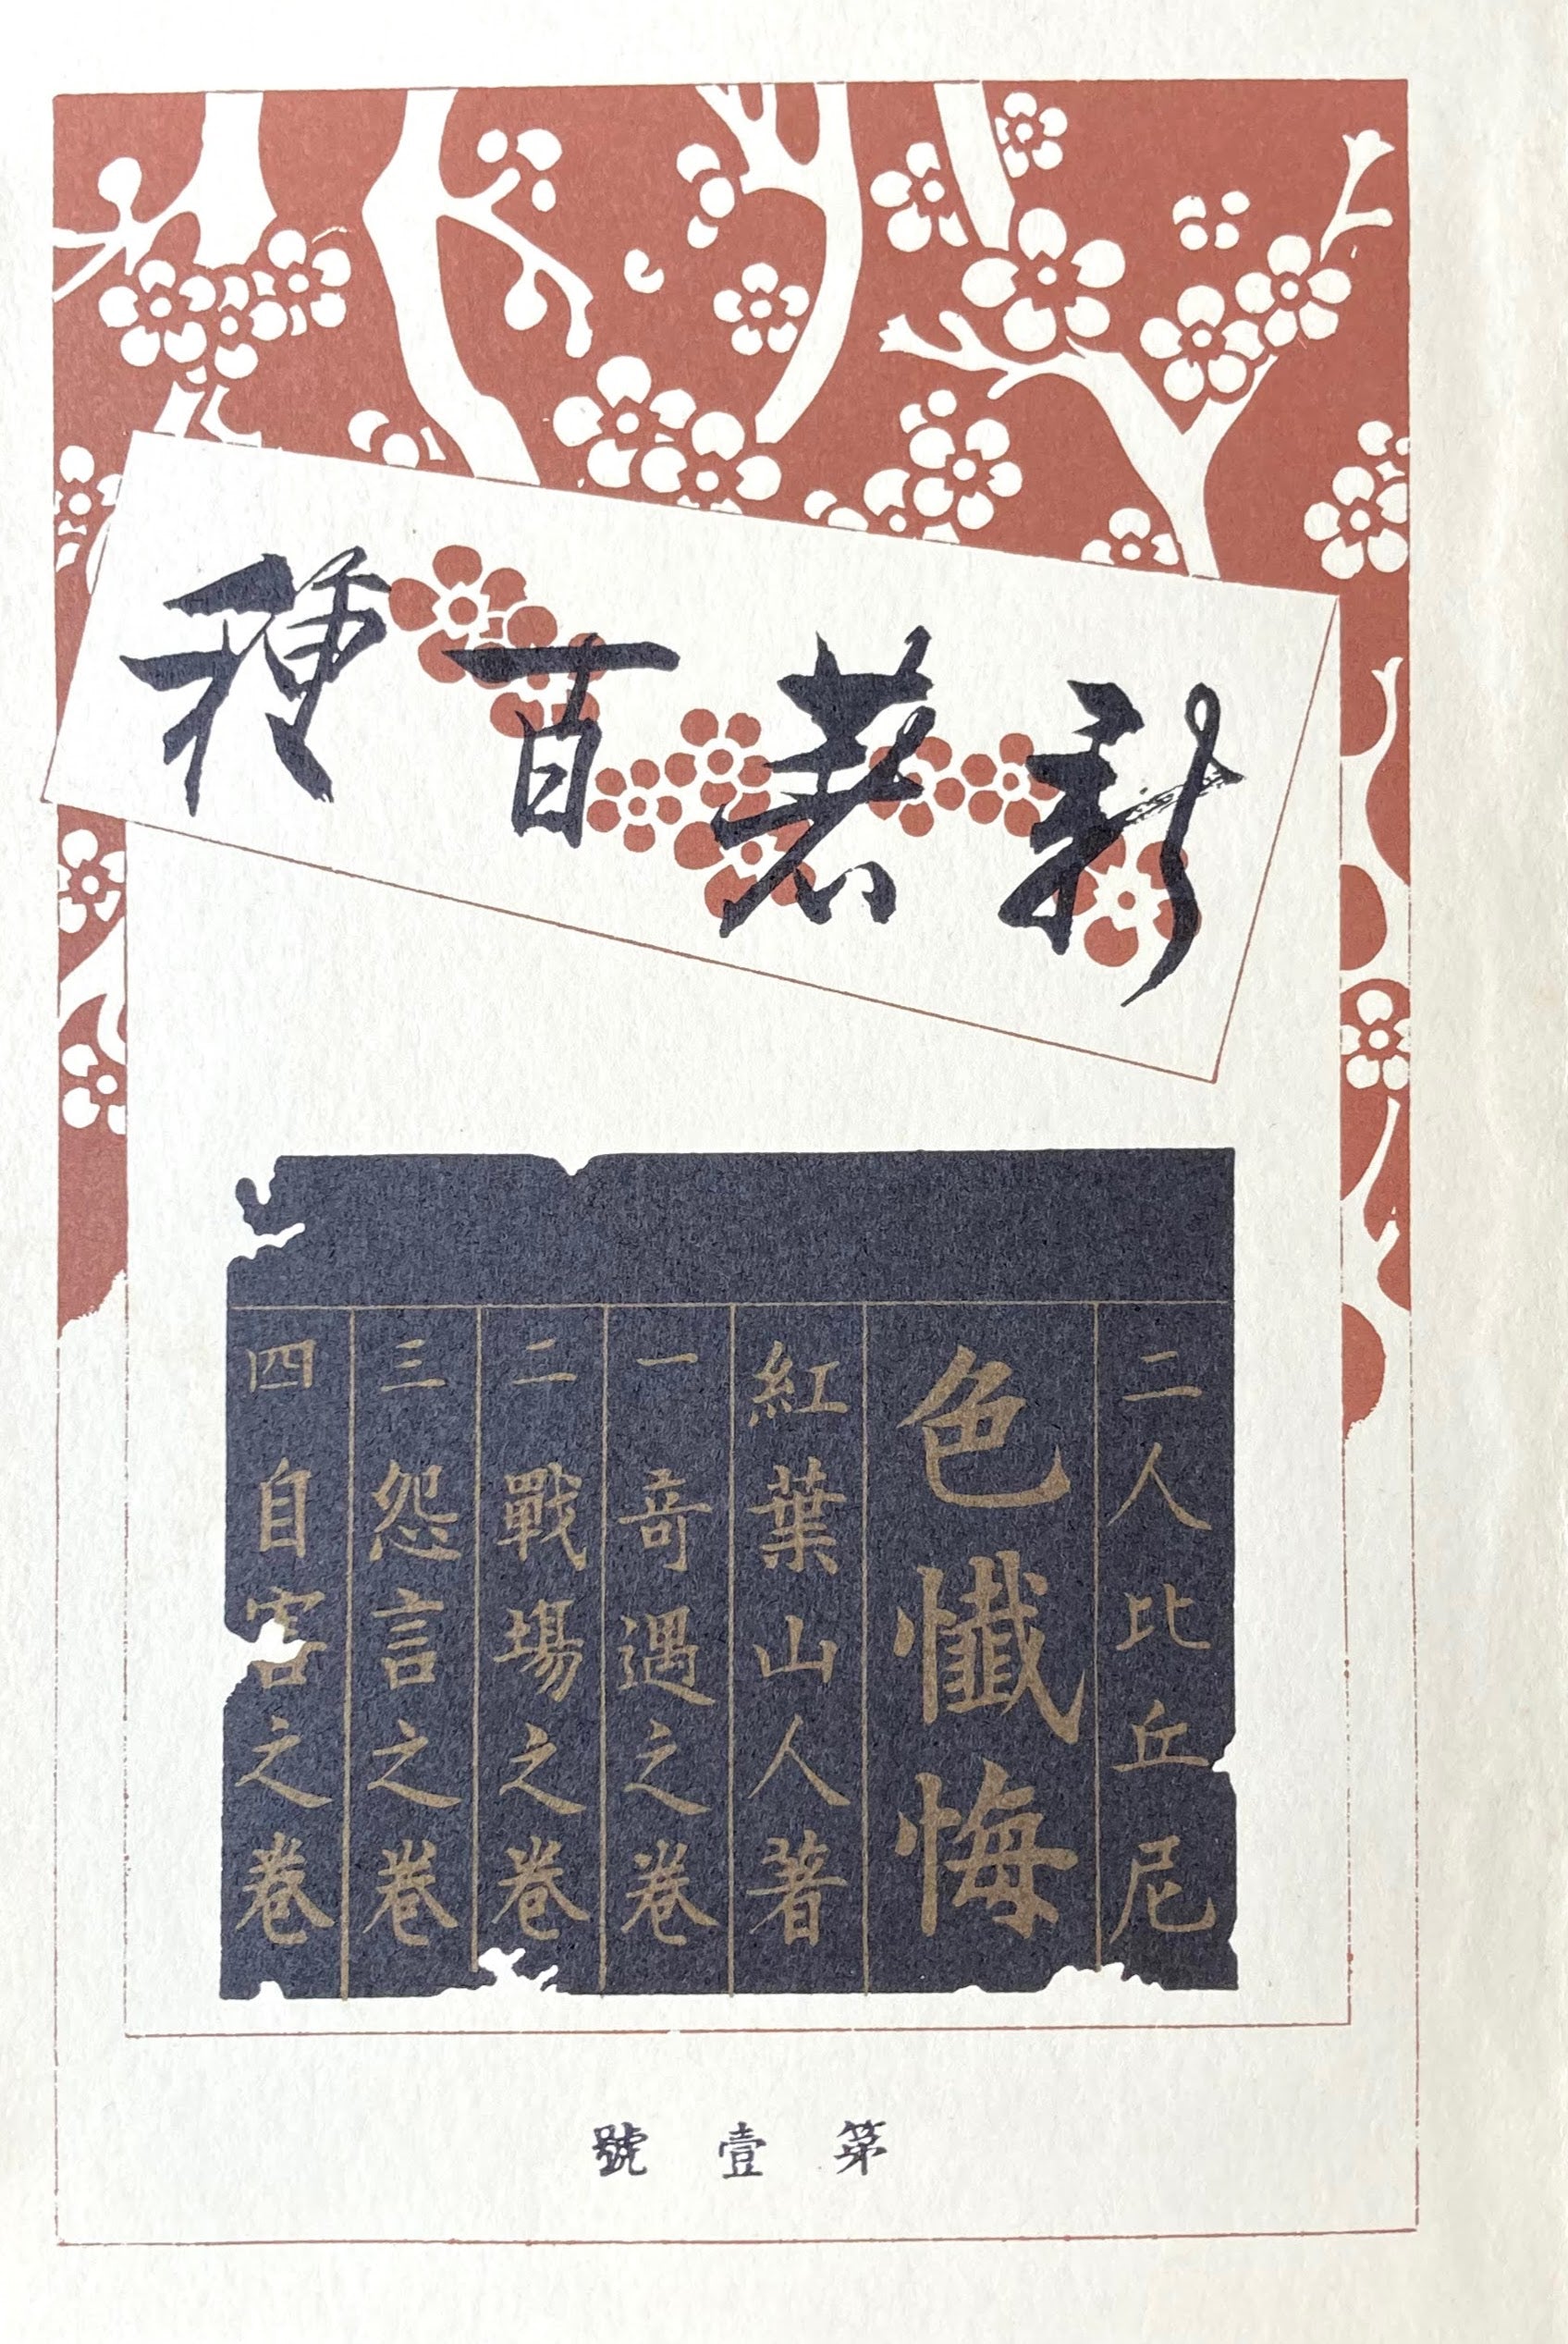 新著百種
二人比丘尼
色懺悔
紅葉山人著
一 竒遇之巻
二 戰場之巻
三 怨言之巻
四 自害之巻
第壹號